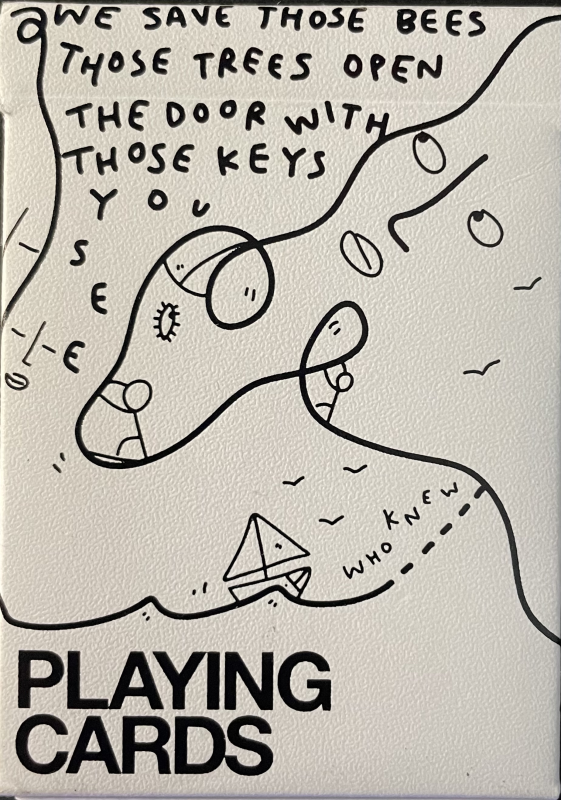 WE SAVE THOSE BEES
THOSE TREES OPEN
THE DOOR WITH
THOSE KEYS
YOU
SEE
WHO KNEW
PLAYING
CARDS